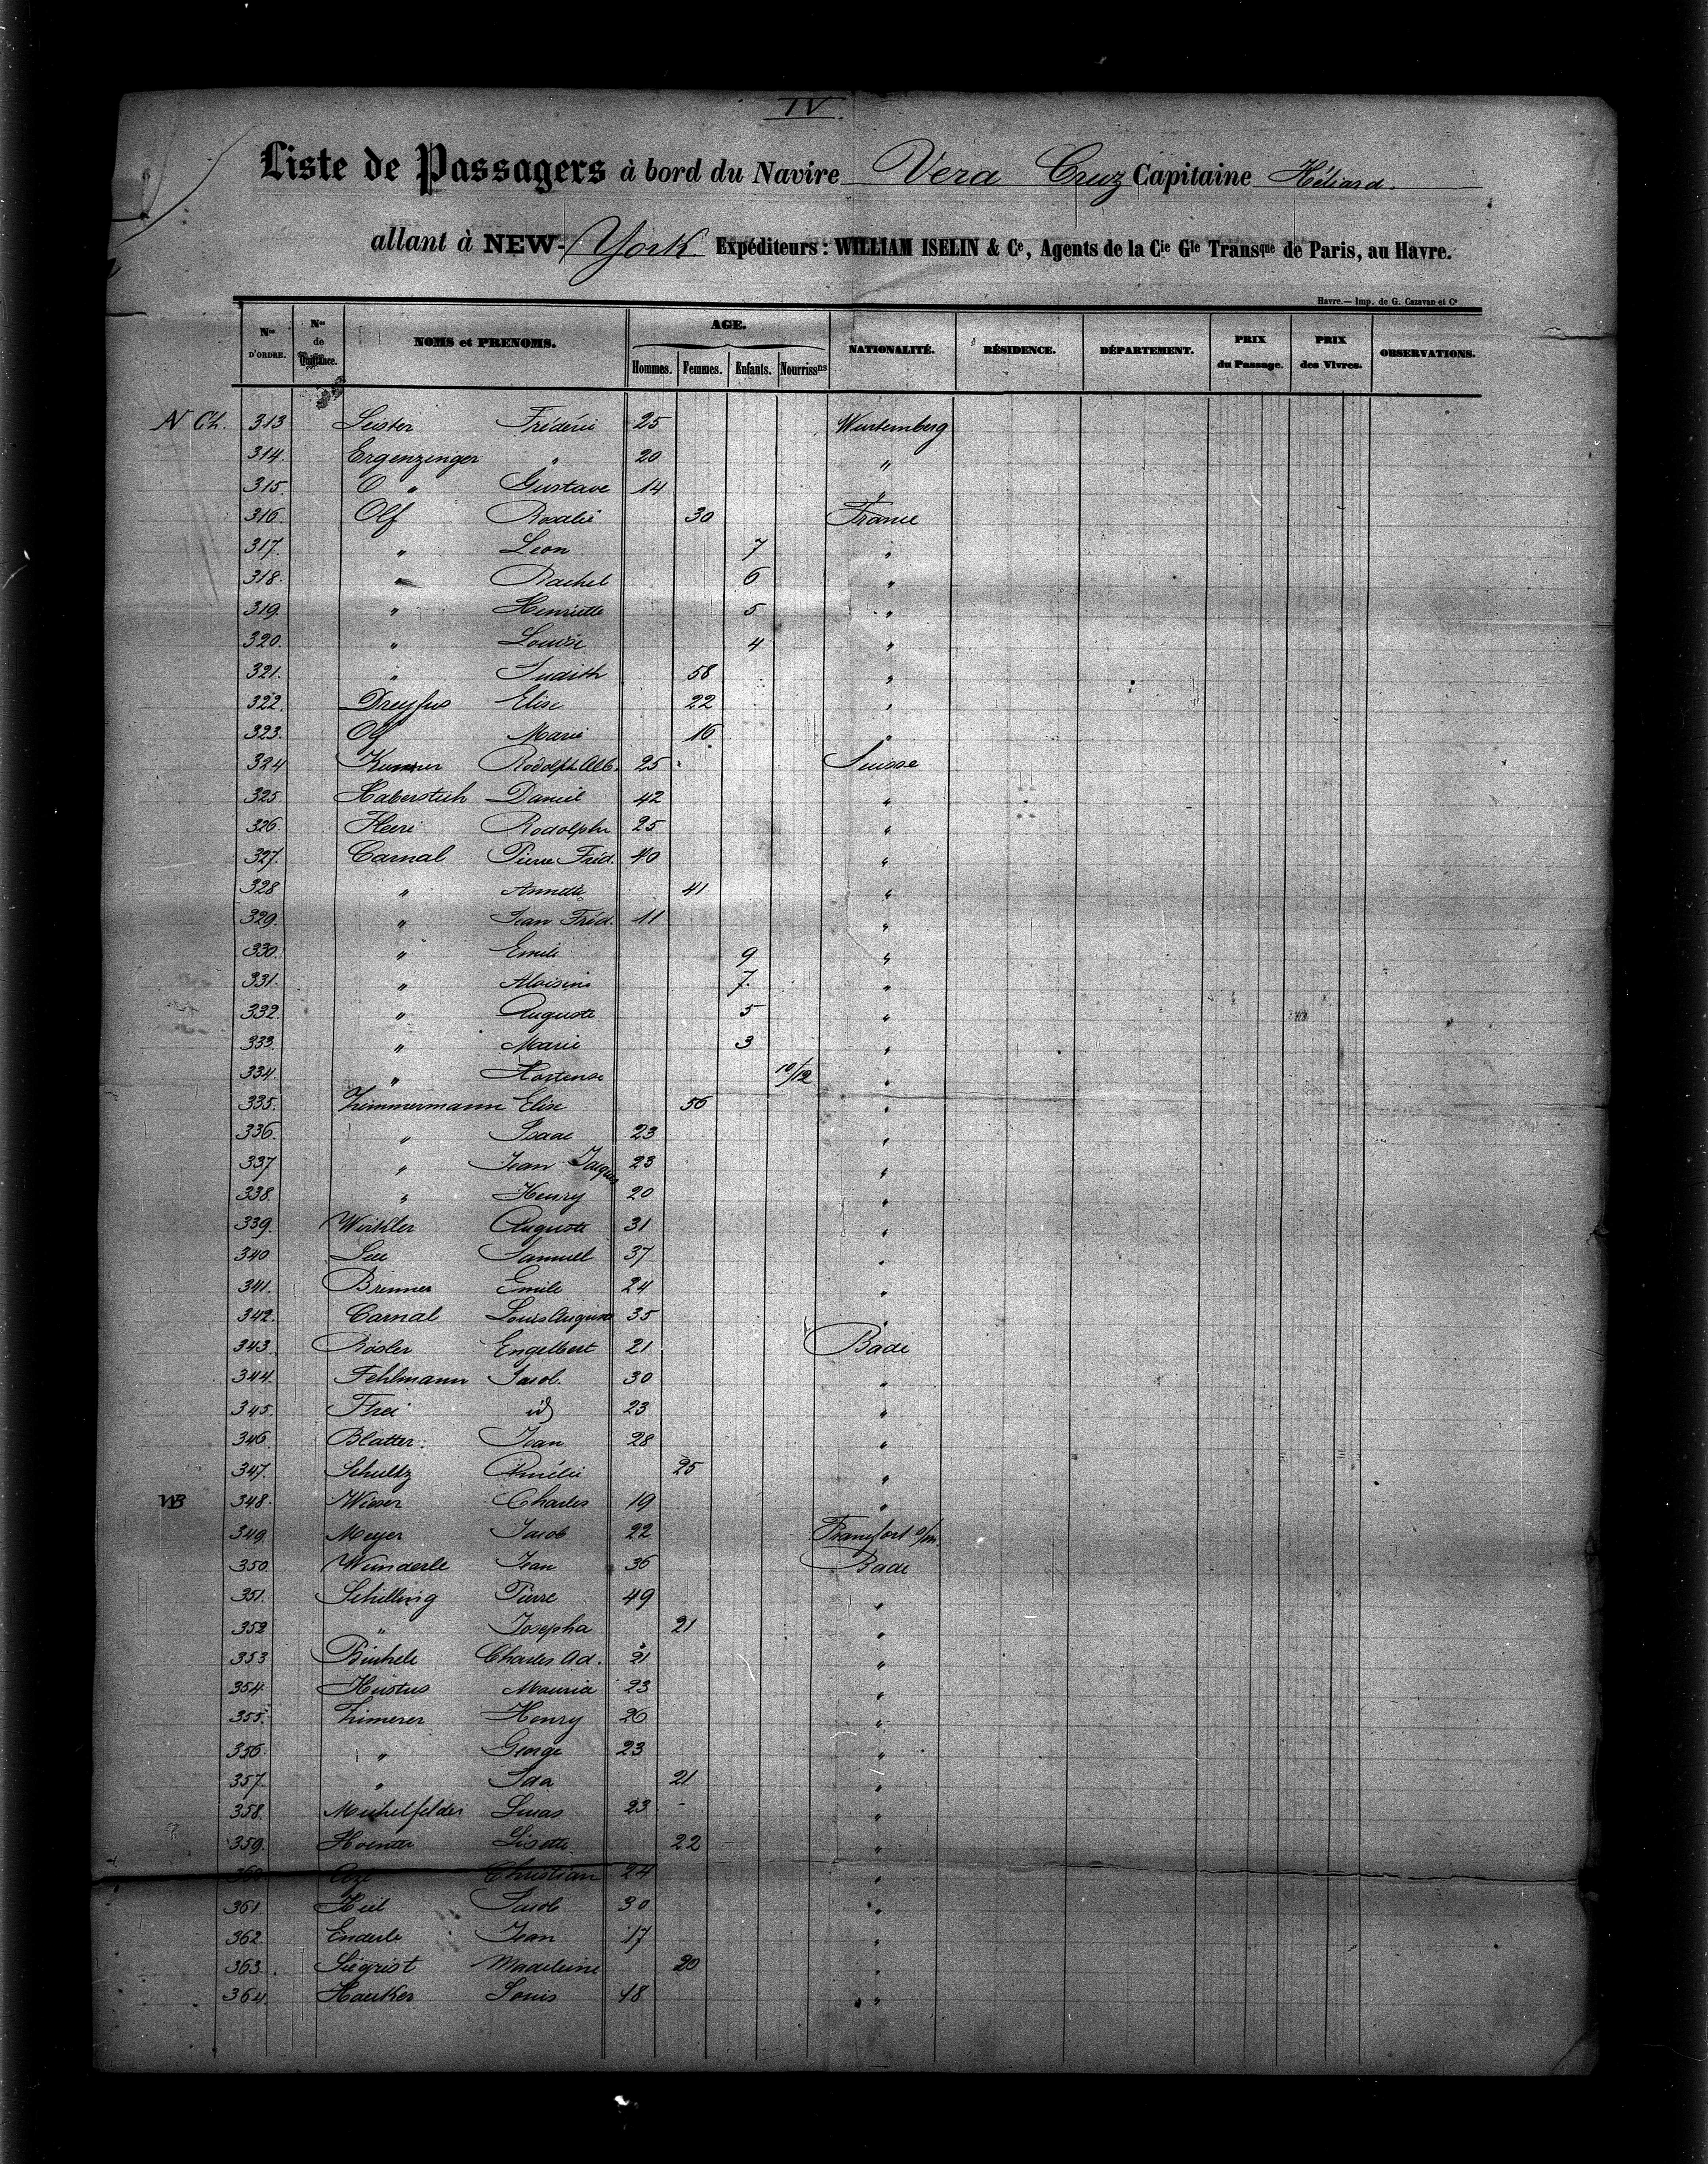 IV
Liste de Passagers à bord du Navire Vera Cruz Capitaine Héliard.
allant à NEW-York Expéditeurs : WILLIAM ISELIN & Ce, Agents de la Cie Gle Transque de Paris, au Havre.
Havre.— Imp. de G. Cazavan et Ce
Nos D'ORDRE. Nos de Quittance. NOMS et PRENOMS. AGE. NATIONALITÉ. RÉSIDENCE. DÉPARTEMENT. PRIX du Passage. PRIX des Vivres. OBSERVATIONS.
Hommes. Femmes. Enfants. Nourrissns
N Ch. 313 Leister Frédéric 25 Wurtemberg
314. Ergenzinger " 20 "
315. " Gustave 14 "
316. Olf Rosalie 30 France
317. " Leon 7 "
318. " Rachel 6 "
319. " Henriette 5 "
320. " Louise 4 "
321. " Judith 58 "
322. Dreyfus Elise 22 "
323. Olf Marie 16 "
324 Rodolph Alb. 25 Suisse
325. Haberstich Daniel 42 "
326. Heeri Rodolphe 25 "
327. Carnal Pierre Fréd. 40 "
328 " Annette 41 "
329. " Jean Fréd. 11 "
330. " Emile 9 "
331. " 7. "
332. " Auguste 5 "
333. " Marie 3 "
334. " Hortense 10/12 "
335. Zimmermann Elise 56 "
336. " Isaac 23 "
337 " Jean Jacques 23 "
338. " Henry 20 "
339. Auguste 31 "
340 Samuel 37 "
341. Brunner Emile 24 "
342. Carnal Louis Auguste 35 "
343. Rösler Engelbert 21 Bade
344. Fehlmann Jacob. 30 "
345. Frei id 23 "
346. Blatter. Jean 28 "
347. Schultz Amélie 25 "
WB 348. Wieser Charles 19 "
349. Meyer Jacob 22 Francfort s/m.
350. Wunderle Jean 36 Bade
351. Schilling Pierre 49 "
352 " Josepha 21 "
353 Charles Ad. 21 "
354. 23 "
355. Zimerer Henry 26 "
356. " George 23 "
357. " Ida 21 "
358. Michelfelder Lucas 23 "
359. Lisette 22 "
360 Christian 24 "
361. Jacob 30 "
362. Enderle Jean 17 "
363. Siegrist Madeleine 20 "
364. Hauker Louis 48 "